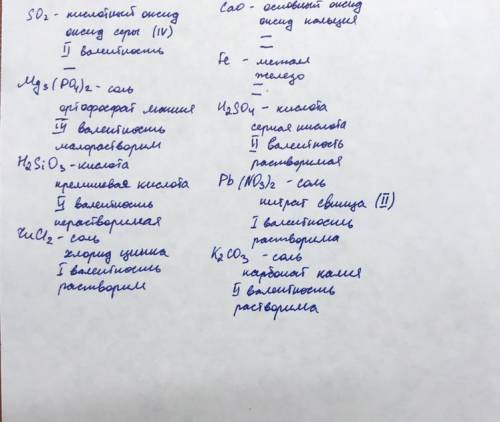 SO2 - кислотный оксид
оксид серы (IV)
II валентность
—
Mg3(PO4)2 - соль
ортофосфат магния
III валентность
малорастворим
H2SiO3 - кислота
кремниевая кислота
II валентность
нерастворимая
ZnCl2 - соль
хлорид цинка
I валентность
растворим
CaO - основный оксид
оксид кальция
II
—
Fe - металл
железо
II
H2SO4 - кислота
серная кислота
II валентность
растворимая
Pb(NO3)2 - соль
нитрат свинца (II)
I валентность
растворима
K2CO3 - соль
карбонат калия
II валентность
растворима